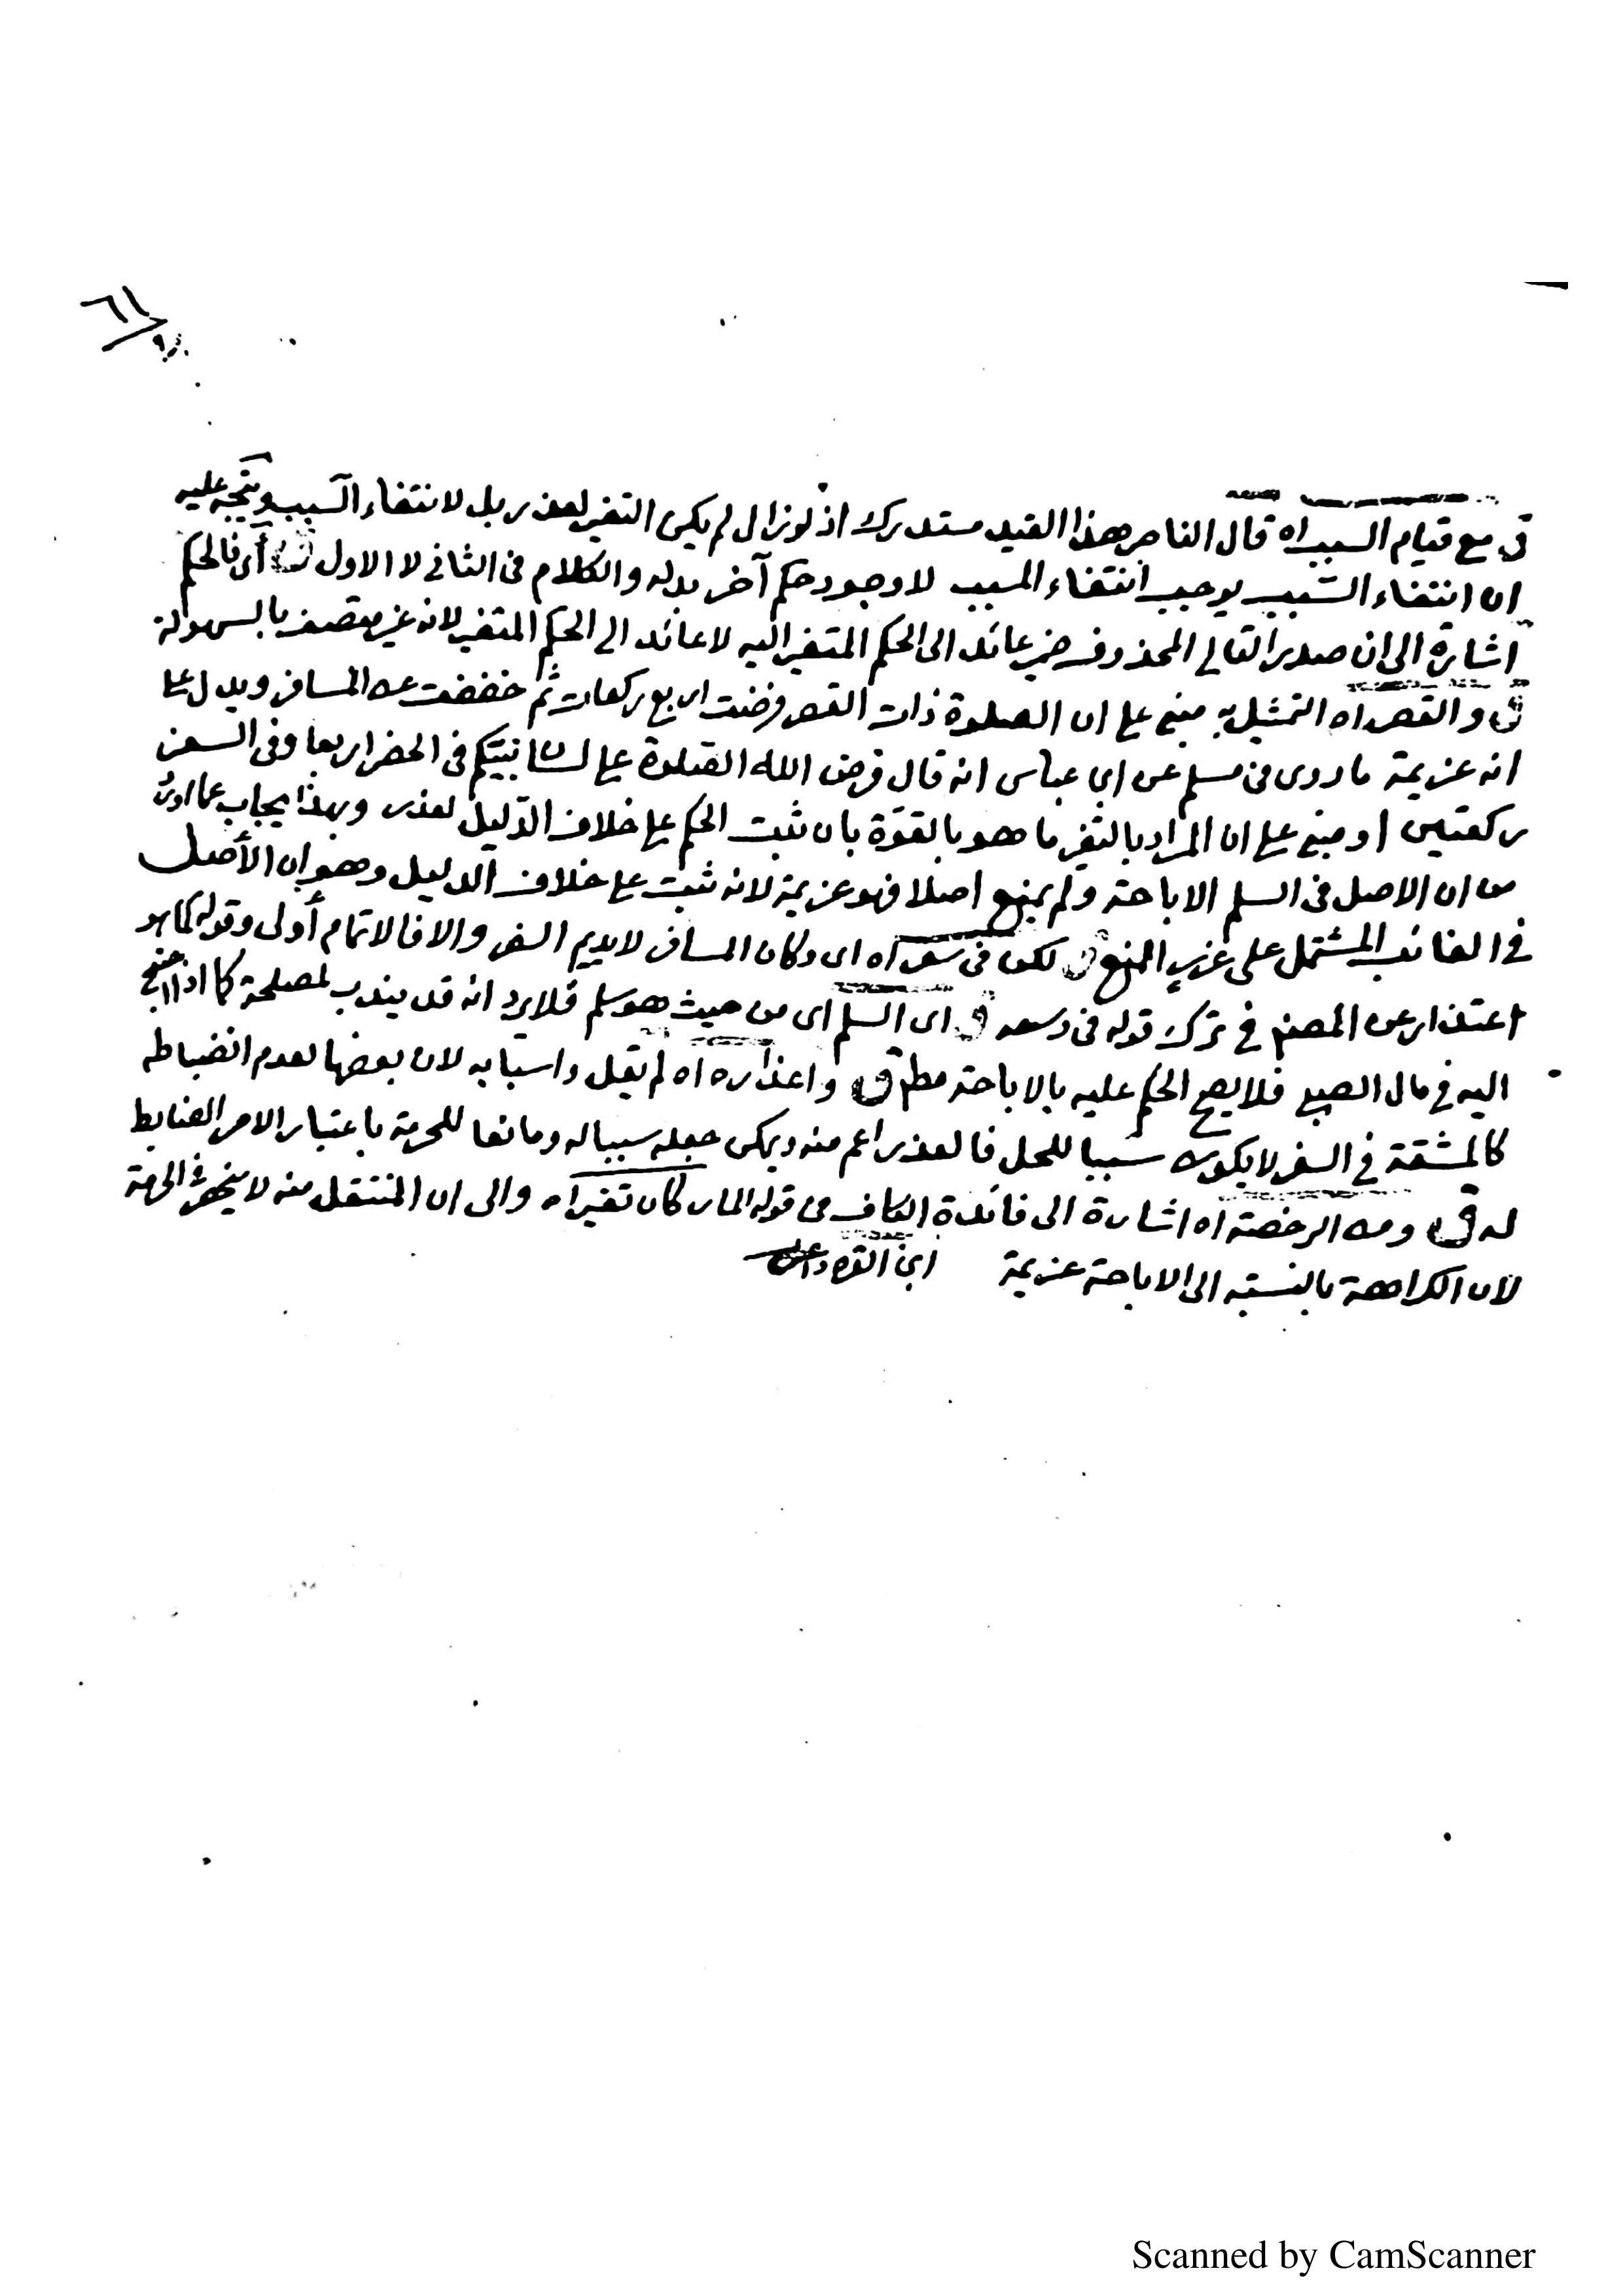 ق مع قيام السبب اه قال الناصر هذا القيد مستدرك اذ لو زال لم يكن التغير لعذر بل لانتفاء السبب ويتجه عليه
ان انتفاء السبب يوجب انتفاء المسبب لا وجود حكم آخر بدله والكلام فى الثانى لا الاول أى فالحكم
اشارة الى ان صدر التالى المحذوف ضمير عائد الى الحكم المتغير اليه لا عائد الى الحكم المتغير لانه غير متصف بالسهولة
ق والقصر اه التمثيل به مبنى على ان الصلوة ذات القصر فرضت اربع ركعات ثم خففت عن المسافر ويدل على
انه عزيمة ما روى فى مسلم عن ابن عباس انه قال فرض الله الصلوة على لسان نبيكم فى الحضر اربعا وفى السفر
ركعتين او مبنى على ان المراد بالتغير ما هو بالقوة بان ثبت الحكم على خلاف الدليل لعذر وبهذا يجاب عما اورد
من ان الاصل فى السلم الاباحة ولم يمنع اصلا فهو عزيمة لانه ثبت على خلاف الدليل وهو ان الأصل
في الغائب المشتمل على غرر المنع ق لكن فى سفر اه اى وكان المسافر لا يديم السفر والا فالاتمام أولى وقوله كما هو
اعتذار عن المصنف في ترك قوله فى وسعه ق اى السلم اى من حيث هو سلم فلا يرد انه قد يندب لمصلحة كما اذا احتيج
اليه فى مال الصبى فلا يصح الحكم عليه بالاباحة مطلقا ق واعذاره اه لم يقل واسبابه لان بعضها لعدم انضباطه
كالمشقة فى السفر لا يكون سببا للحل فالعذر اعم منه ويمكن جعله سببا له ومانعا للحرمة باعتبار الامر الضابط
له ق ومن الرخصة اه اشارة الى فائدة الكاف من قوله المار كان تغير اه والى ان المنتقل منه لا ينحصر فى الحرمة
لان الكراهة بالنسبة الى الاباحة عزيمة ابن القره داغى
Scanned by CamScanner